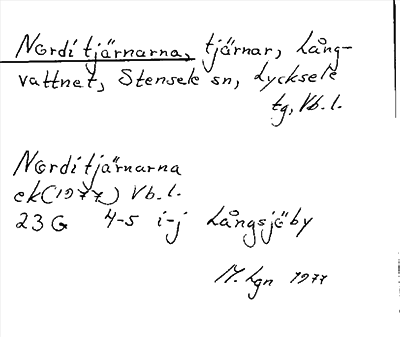 Norditjärnarna, tjärnar, Lång-
vattnet, Stensele sn, Lycksele
tg, Vb. l.
Norditjärnarna
ek (1977) Vb. l.
23 G 4-5 i-j Långsjöby
M. Lgn 1977